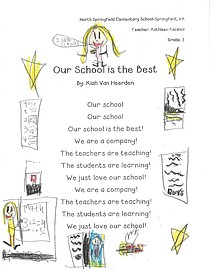 North Springfield Elementary School-Springfield, VA
Teacher: Kathleen
Grade: 1
Our School is the Best
By: Kiah Van Heerden
Our school
Our school
Our school is the best!
We are a company!
The teachers are teaching!
The students are learning!
We just love our school!
We are a company!
The teachers are teaching!
The students are learning!
We just love our school!